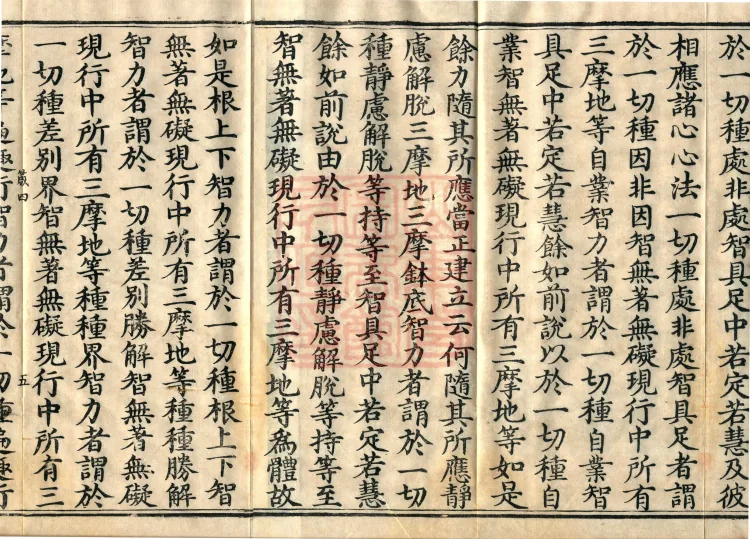 於一切種處非處智具足中若定若慧及彼
相應諸心心法一切種處非處智具足者謂
於一切種因非因智無著無礙現行中所有
三摩地等自業智力者謂於一切種自業智
具足中若定若慧餘如前說以於一切種自
業智無著無礙現行中所有三摩地等如是
餘力隨其所應當正建立云何隨其所應靜
慮解脫三摩地三摩鉢底智力者謂於一切
種靜慮解脫等持等至智具足中若定若慧
餘如前說由於一切種靜慮解脫等持等至
智無著無礙現行中所有三摩地等為體故
如是根上下智力者謂於一切種根上下智
無著無礙現行中所有三摩地等種種勝解
智力者謂於一切種差別勝解智無著無礙
現行中所有三摩地等種種界智力者謂於
一切種差別界智無著無礙現行中所有三
箴四 五
摩地等遍趣行智力者謂於一切種遍趣行